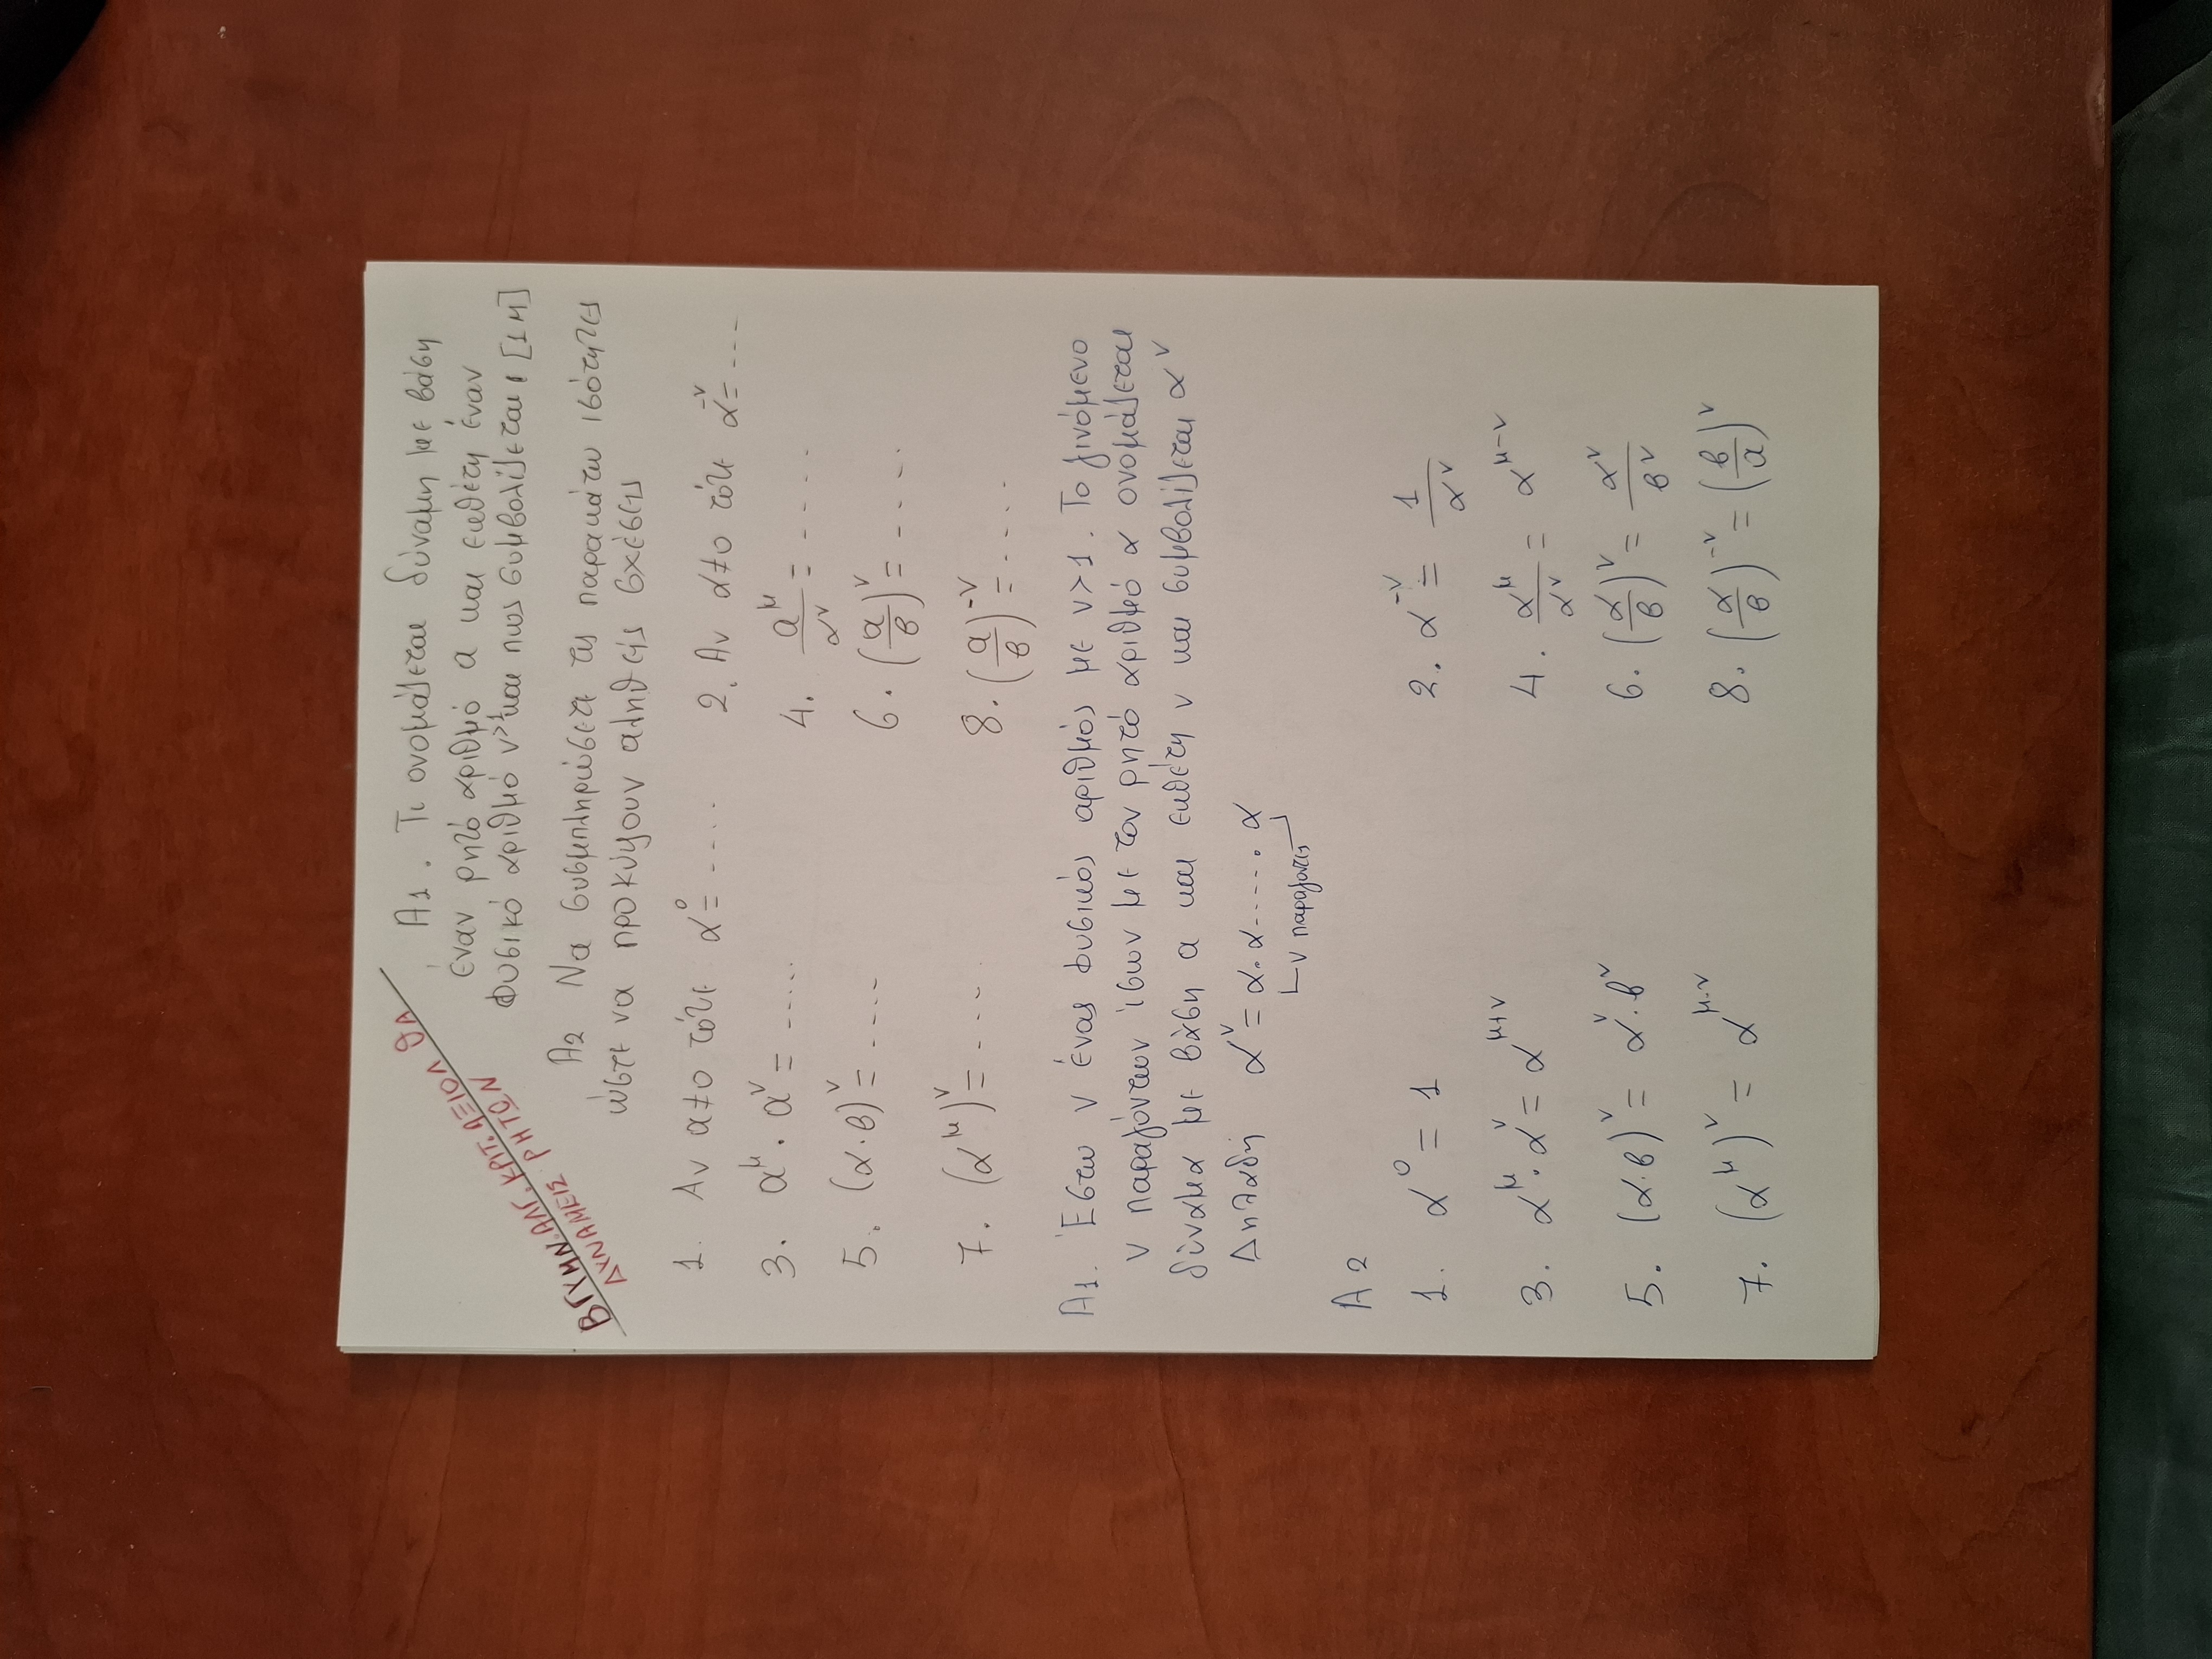 ΒΓΥΜΝ.ΑΛΓ. ΚΡΙΤ. ΑΞΙΟΛ 9Α
ΔΥΝΑΜΕΙΣ ΡΗΤΩΝ
Α1. Τι ονομάζεται δύναμη με βάση
έναν ρητό αριθμό α και εκθέτη έναν
φυσικό αριθμό ν>1 και πως συμβολίζεται [1Μ]
Α2 Να συσμπληρώσετε τις παρακάτω ισότητες
ώστε να προκύψουν αληθείς σχέσεις
1. Αν α≠0 τότε α⁰=.... 2. Αν α≠0 τότε α⁻ᵛ=...
3. α^μ · α^ν = ..... 4. α^μ/α^ν = .....
5. (α·β)^ν = ..... 6. (α/β)^ν = .....
7. (α^μ)^ν = .... 8. (α/β)^-ν = ....
Α1. Έστω ν ένας φυσικός αριθμός με ν>1. Το γινόμενο
ν παραγόντων ίσων με τον ρητό αριθμό α ονομάζεται
δύναμα με βάση α και εκθέτη ν και συμβολίζεται α^ν
Δηλαδή α^ν = α·α·.....·α
ν παράγοντες
Α2
1. α⁰ = 1 2. α^-ν = 1/α^ν
3. α^μ · α^ν = α^μ+ν 4. α^μ/α^ν = α^μ-ν
5. (α·β)^ν = α^ν·β^ν 6. (α/β)^ν = α^ν/β^ν
7. (α^μ)^ν = α^μ·ν 8. (α/β)^-ν = (β/α)^ν